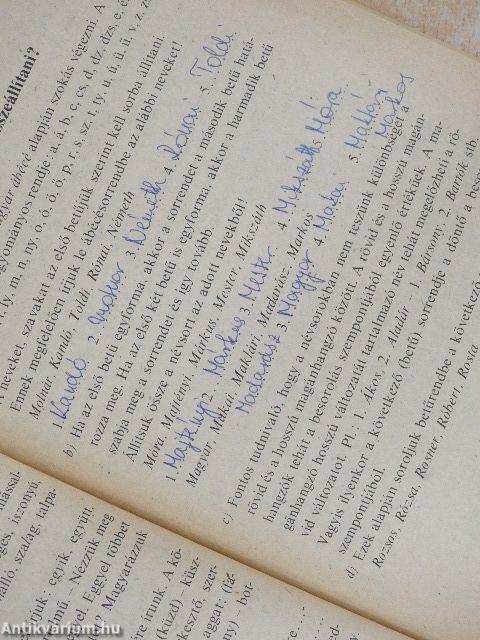 összeállítani?
magyar ábécé alapján szokás végezni. A
hagyományos rendje: a, á, b, c, cs, d, dz, dzs, e, é,
t, ty, m, n, ny, o, ó, ö, ő, p, r, s, sz, t, ty, u, ú, ü, ű, v, z, zs
A neveket, szavakat az első betűjük szerint kell sorba állítani.
Ennek megfelelően írjuk le ábécésorrendbe az alábbi neveket!
Molnár, Kandó, Toldi, Rónai, Németh
1. Kandó 2. Molnár 3. Németh 4. Rónai 5. Toldi
b) Ha az első betű egyforma, akkor a sorrendet a második betű hatá-
rozza meg. Ha az első két betű is egyforma, akkor a harmadik betű
szabja meg a sorrendet és így tovább.
Állítsuk össze a névsort az adott nevekből!
Móra, Majtényi, Márkus, Mester, Mikszáth
1. Majtényi 2. Márkus 3. Mester 4. Mikszáth 5. Móra
Magyar, Makai, Maklári, Madarász, Markos
Madarász 3. Magyar 4. Makai 5. Maklári
Markos
c) Fontos tudnivaló, hogy a névsorokban nem teszünk különbséget a
rövid és a hosszú magánhangzó között. A rövid és a hosszú magán-
hangzók tehát a besorolás szempontjából egyenlő értékűek. A ma-
gánhangzó hosszú változatát tartalmazó név tehát megelőzheti a rö-
vid változatot. Pl.: 1. Ákos, 2. Aladár – 1. Bársony, 2. Barta stb.
Vagyis ilyenkor a következő (betű) sorrendje a döntő a besorolás
szempontjából.
d) Ezek alapján soroljuk betűrendbe a következő
Rozsos, Rózsa, Rovner, Róbert, Rosta
hallő, szalag, talpa-
juk: egyik, együtt.
Nézzük meg
Eggyel többet
Magyarázzuk
ére írunk. A kö-
(küzd) – küsz-
ereszt, szer-
aggat; (fá-
bot-
Antikvarium.hu